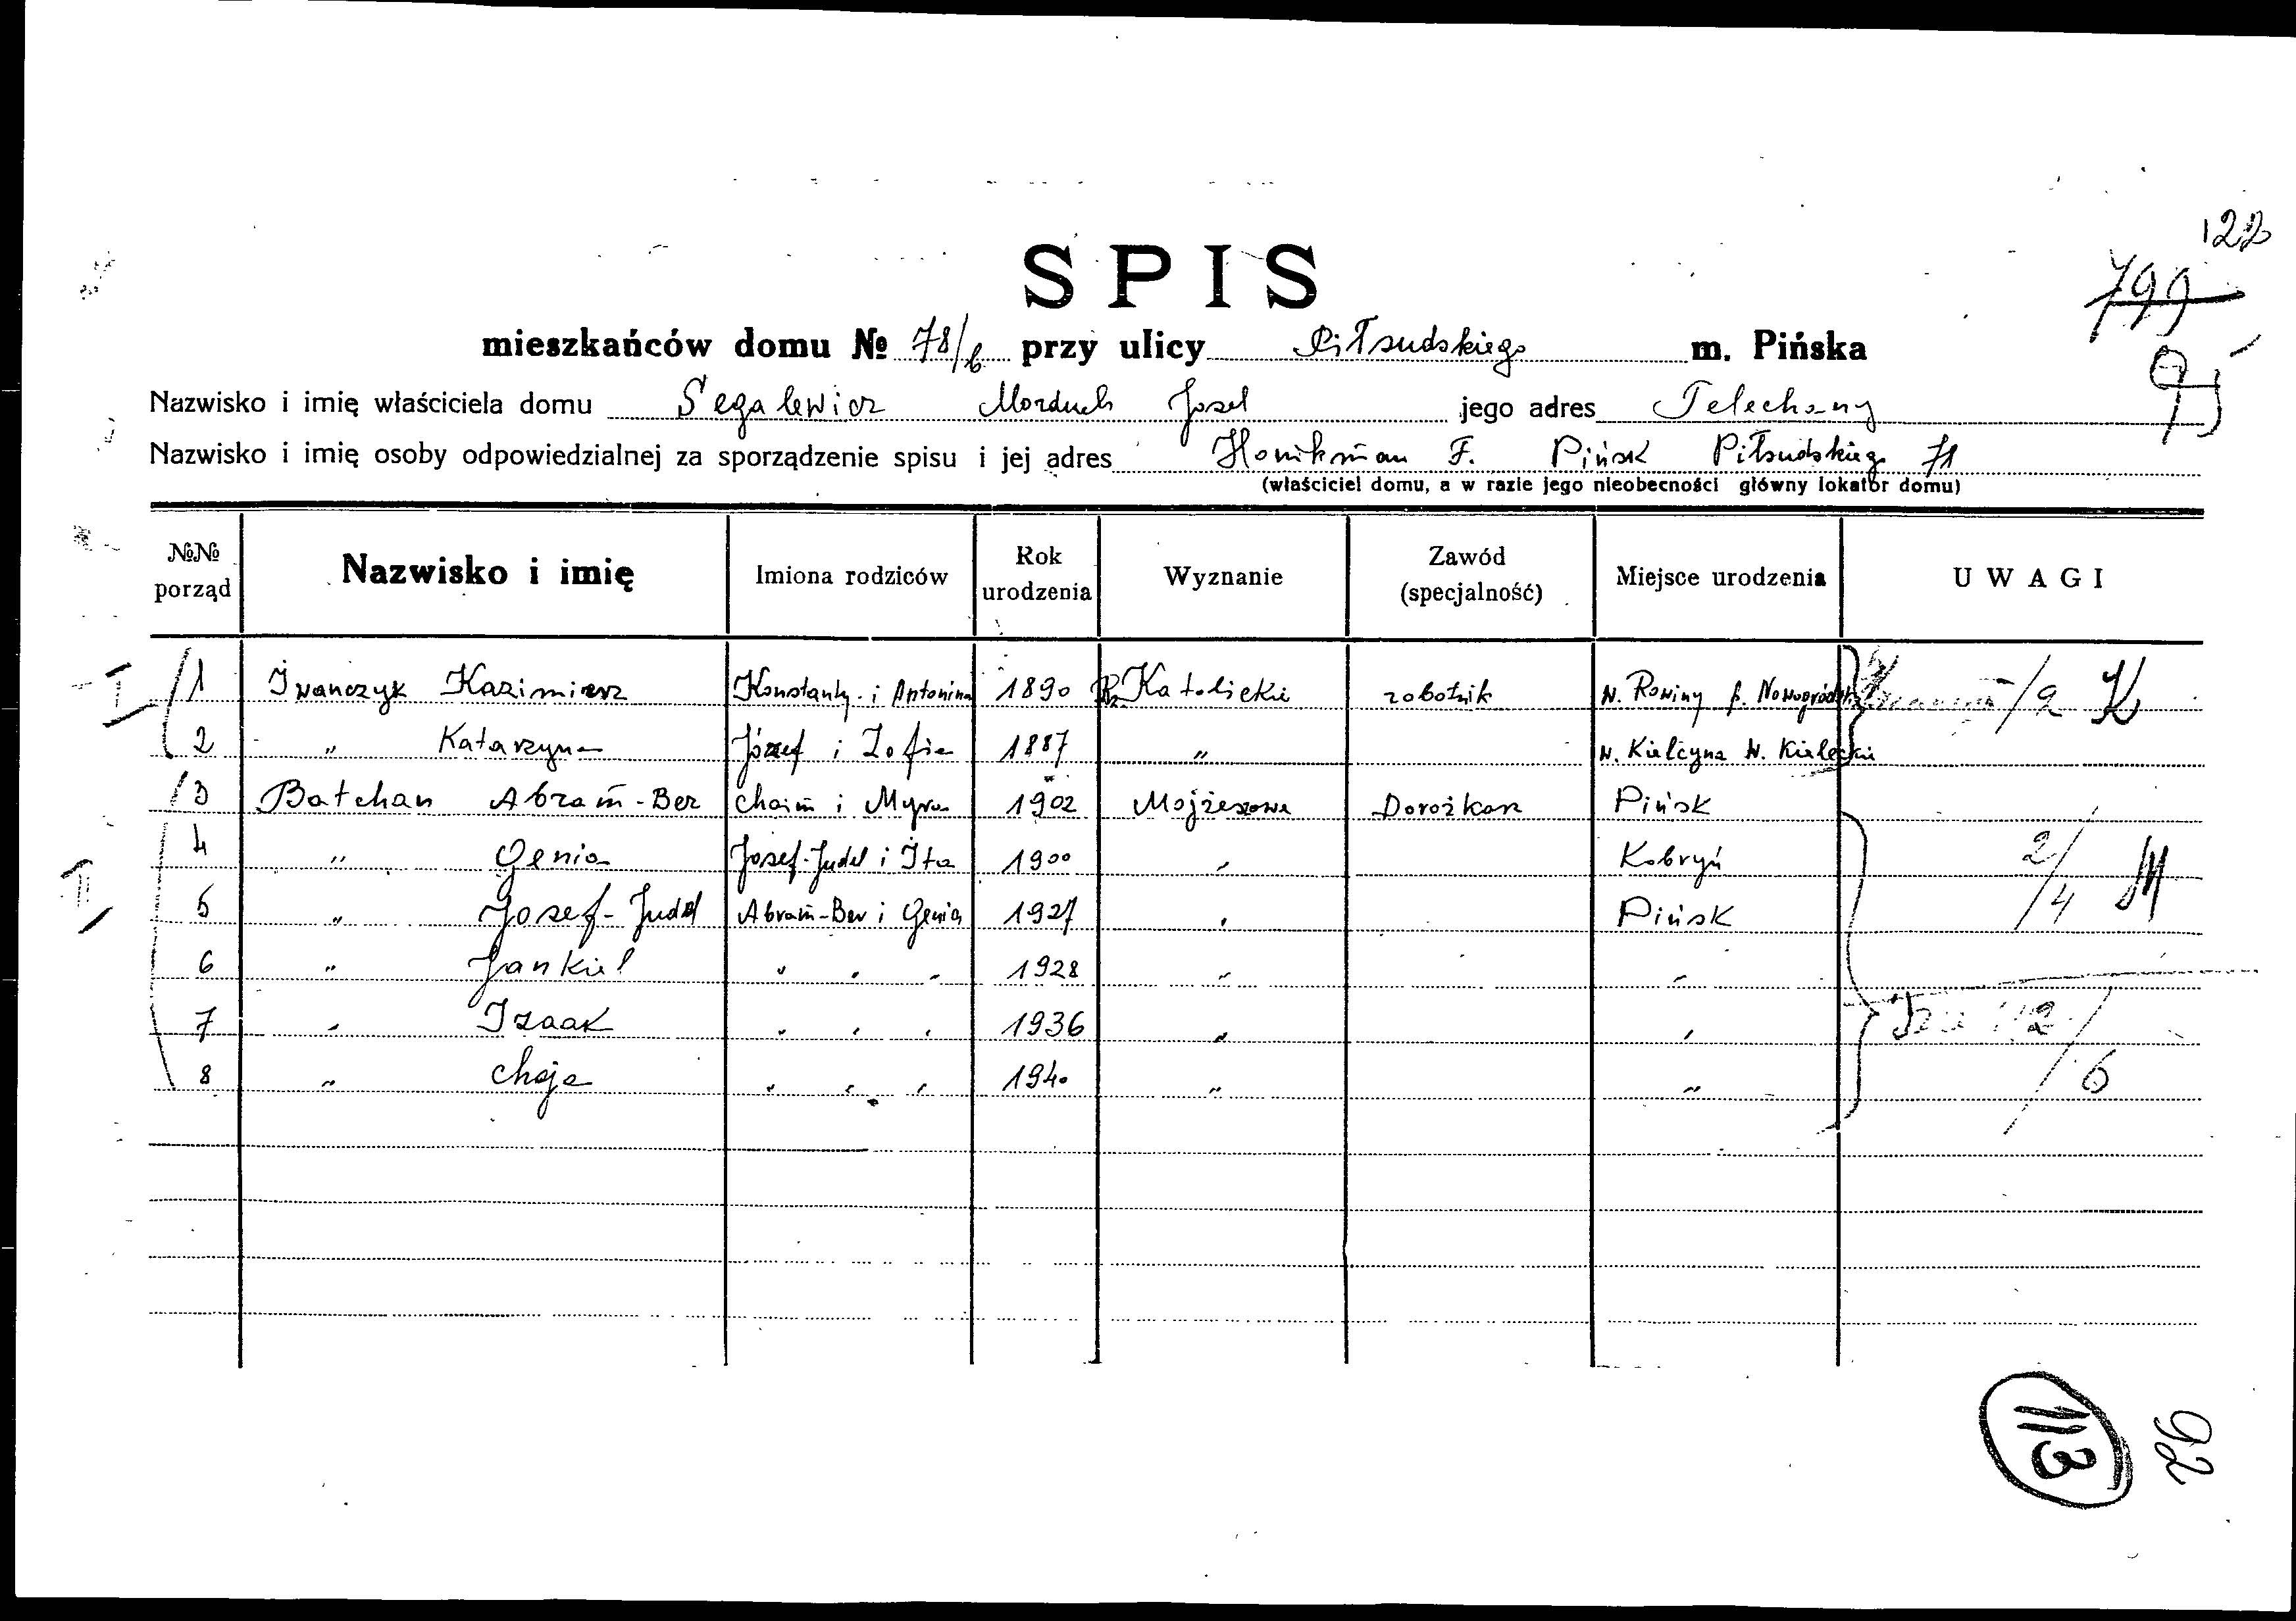 122
799
95
SPIS
mieszkańców domu № 78/b przy ulicy Piłsudskiego m. Pińska
Nazwisko i imię właściciela domu Segalewicz Morduch Josel jego adres Telechany
Nazwisko i imię osoby odpowiedzialnej za sporządzenie spisu i jej adres Honikman F. Pińsk Piłsudskiego 71
(właściciel domu, a w razie jego nieobecności główny lokator domu)
№№ porząd Nazwisko i imię Imiona rodziców Rok urodzenia Wyznanie Zawód (specjalność) Miejsce urodzenia UWAGI
I 1 Iwańczyk Kazimierz Konstanty i Antonina 1890 Rz Katolickie robotnik w. Rowiny p. Nowogródzki /2 K
2 " Katarzyna Józef i Zofia 1887 " w. Kielcyna w. Kieleckie
3 Batchan Abram-Ber Chaim i Myra 1902 Mojżeszowe Dorożkarz Pińsk
II 4 " Genia Josef-Judel i Ita 1900 " Kobryń 2/4 M
5 " Josef-Judel Abram-Ber i Genia 1927 " Pińsk
6 " Jankiel " " " 1928 " "
7 " Izaak " " " 1936 " " 2/6
8 " Chaja " " " 1940 " "
113
92